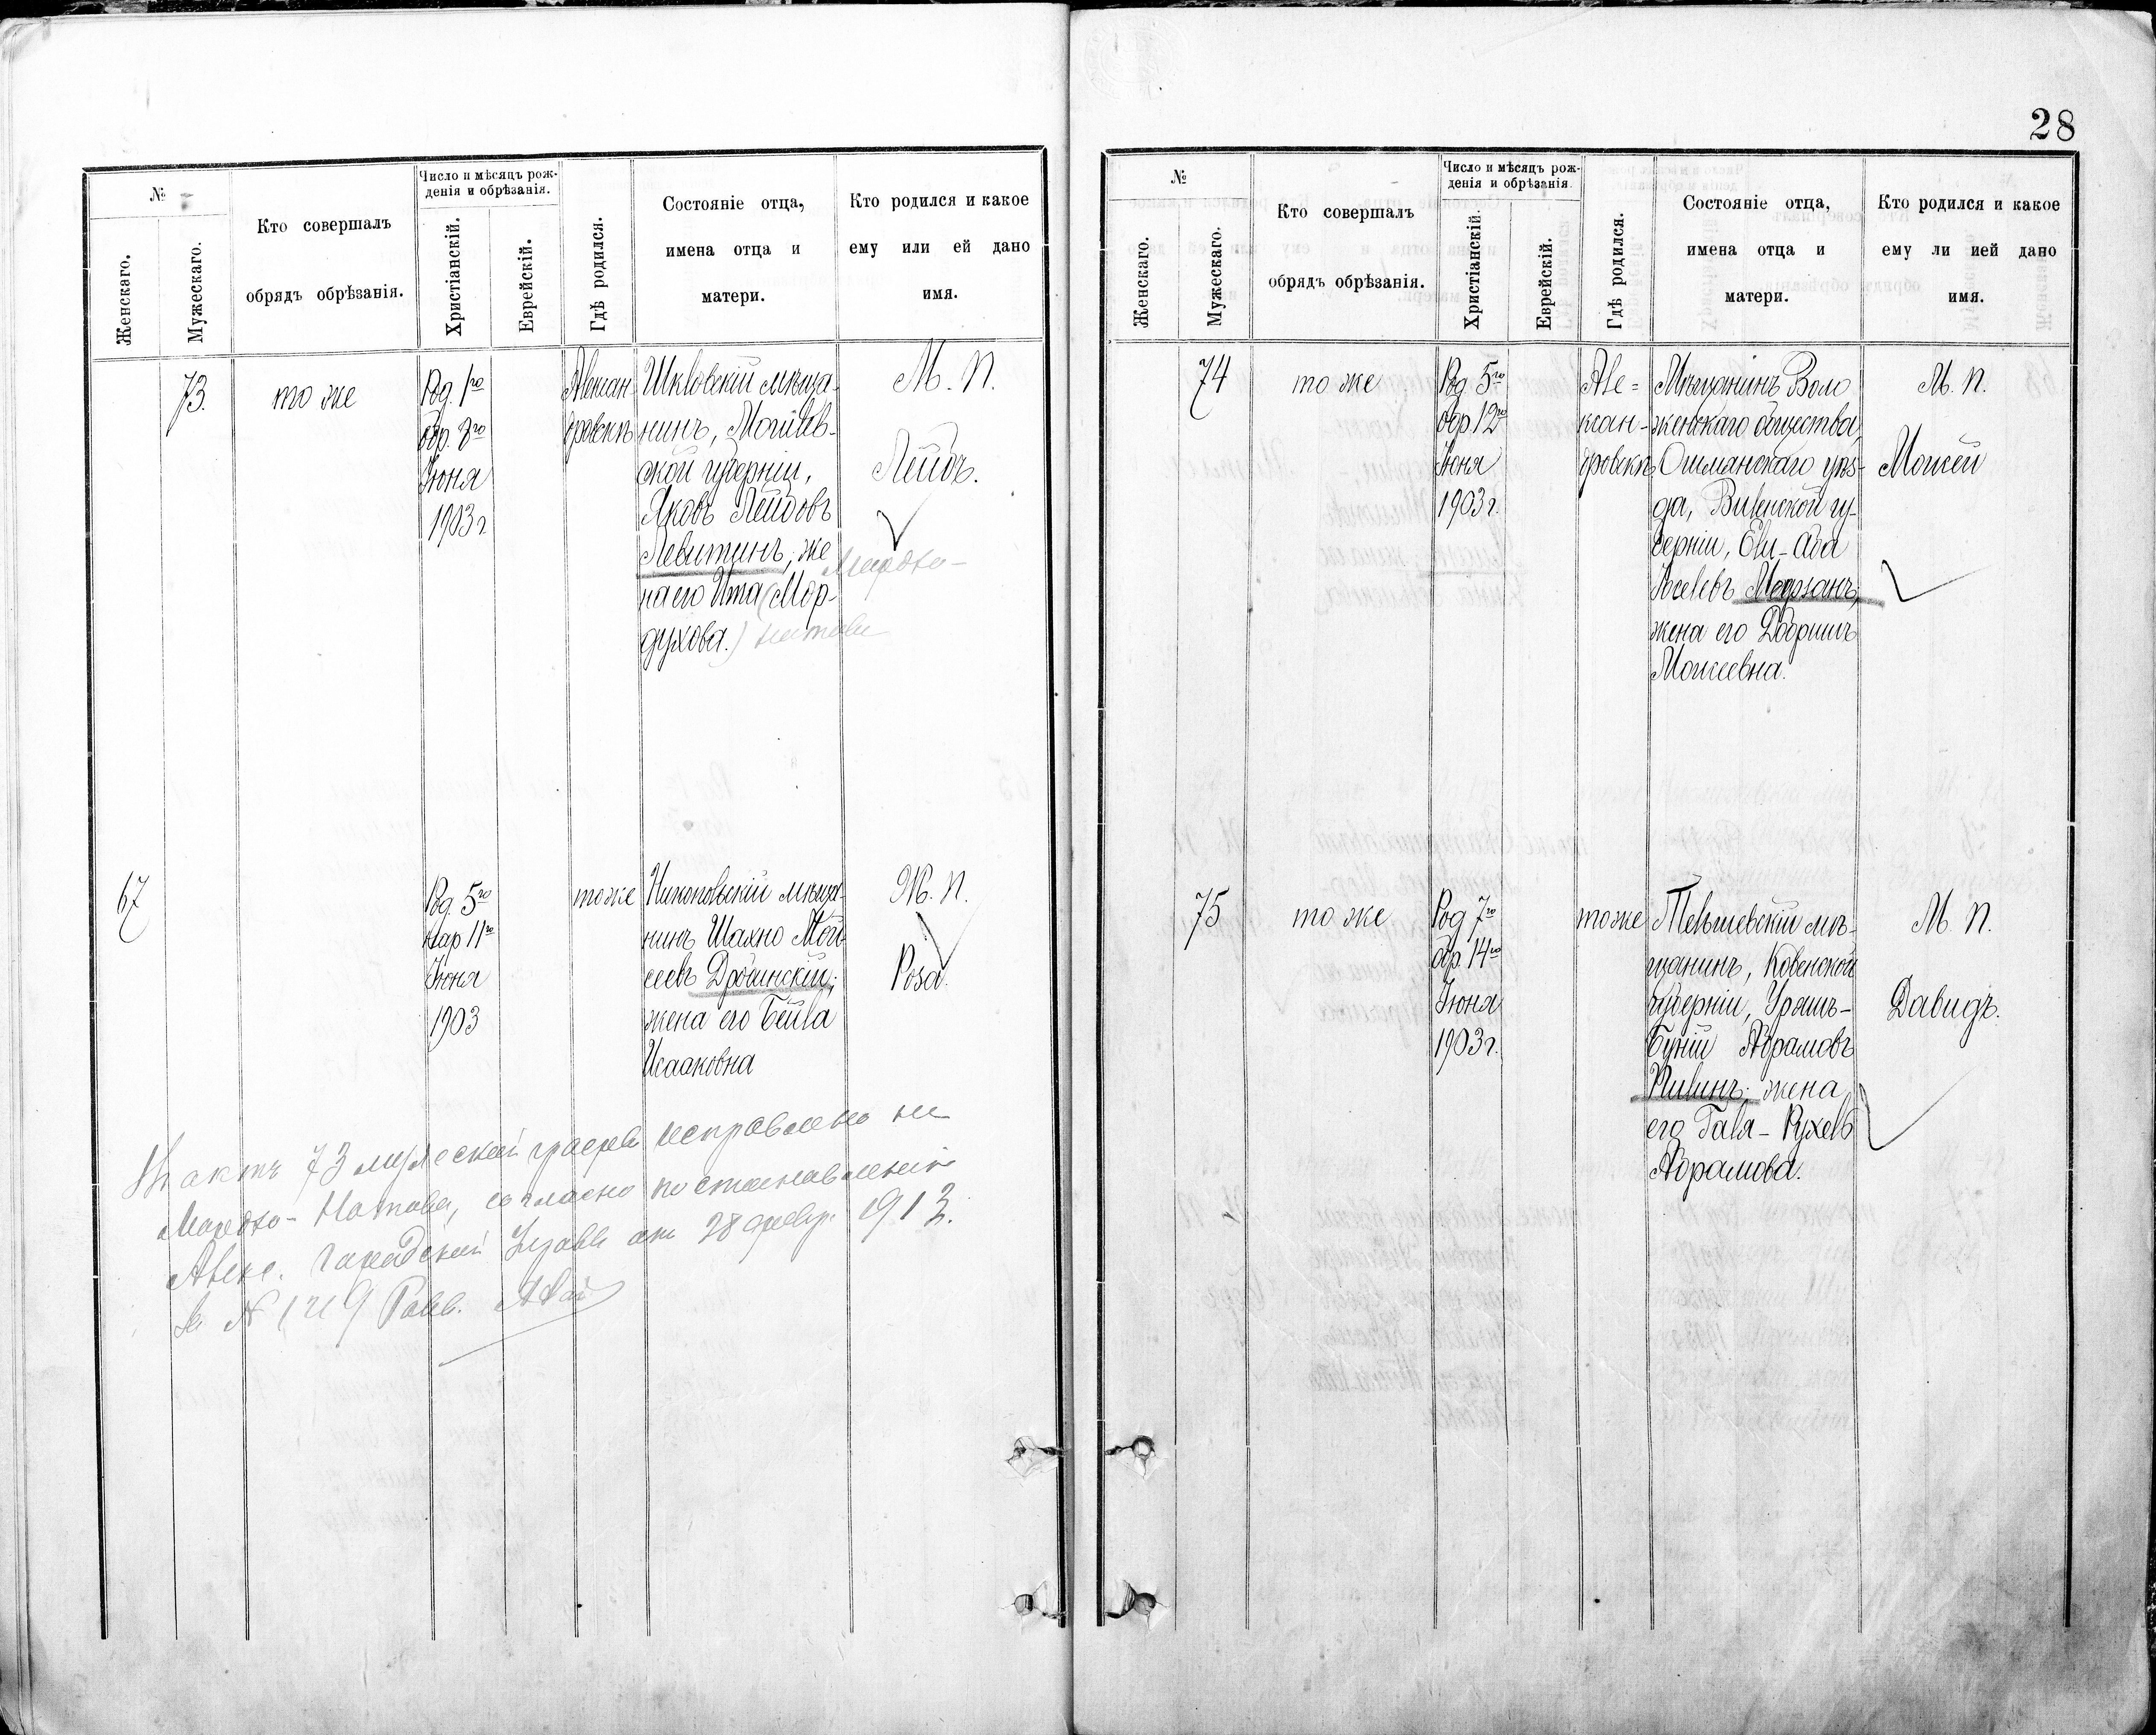 №
Женскаго.
Мужескаго.
Кто совершалъ
обрядъ обрѣзанія.
Число и мѣсяцъ рож-
денія и обрѣзанія.
Христіанскій.
Еврейскій.
Гдѣ родился.
Состояніе отца,
имена отца и
матери.
Кто родился и какое
ему или ей дано
имя.
73.
то же
Род. 1го
обр. 8го
Іюня
1903 г
Алексан-
дровскъ
Шкловскій мѣща-
нинъ, Могилев-
ской губерніи,
Яковъ Лейбовъ
Левитинъ, же
на его Ита (Мор-
духова.)
Мордко-
Натова
М. п.
Лейбъ.
67
Род. 5го
нар 11го
Іюня
1903
то же
Никопольскій мѣща-
нинъ Шахно Мой-
сеевъ Дробинскій;
жена его Бейла
Исааковна
Ж. п.
Роза.
Въ актѣ 73 мужеской графы исправлено на
Мордко-Натова, согласно постановленію
Алекс. Городской Управы от 28 февр. 1913.
за № 1219 Равв.
28
№
Женскаго.
Мужескаго.
Кто совершалъ
обрядъ обрѣзанія.
Число и мѣсяцъ рож-
денія и обрѣзанія.
Христіанскій.
Еврейскій.
Гдѣ родился.
Состояніе отца,
имена отца и
матери.
Кто родился и какое
ему ли ией дано
имя.
74
то же
Род. 5го
обр. 12го
Іюня
1903 г.
Але=
ксан-
дровскъ
Мѣщанинъ Воло
женскаго общества,
Ошмянскаго уѣз-
да, Виленской гу-
берніи, Эли-Аба
Іоселевъ
жена его Добришъ
Моисеевна.
М. п.
Моисей
75
то же
Род 7го
обр. 14го
Іюня
1903 г.
то же
Тельшевскій мѣ-
щанинъ, Ковенской
губерніи,
Абрамовъ
жена
его Галя-Рухель
Абрамова.
М. п.
Давидъ.